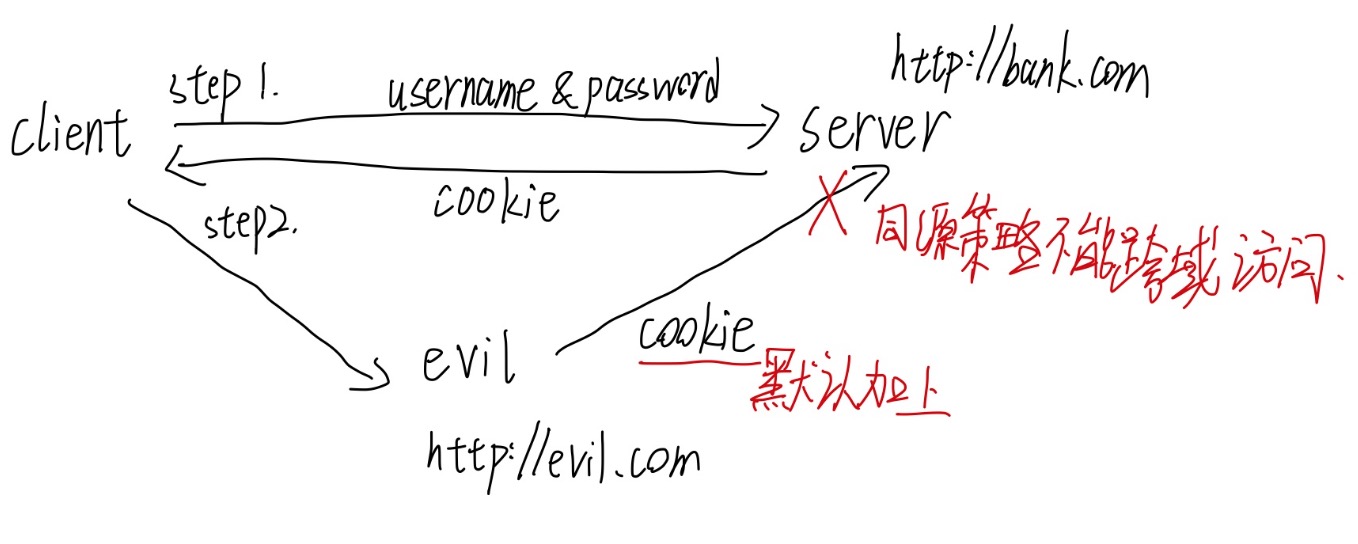 http://bank.com
step 1.
username & password
client
server
cookie
step2.
同源策略不能跨域访问.
cookie
默认加上
evil
http://evil.com